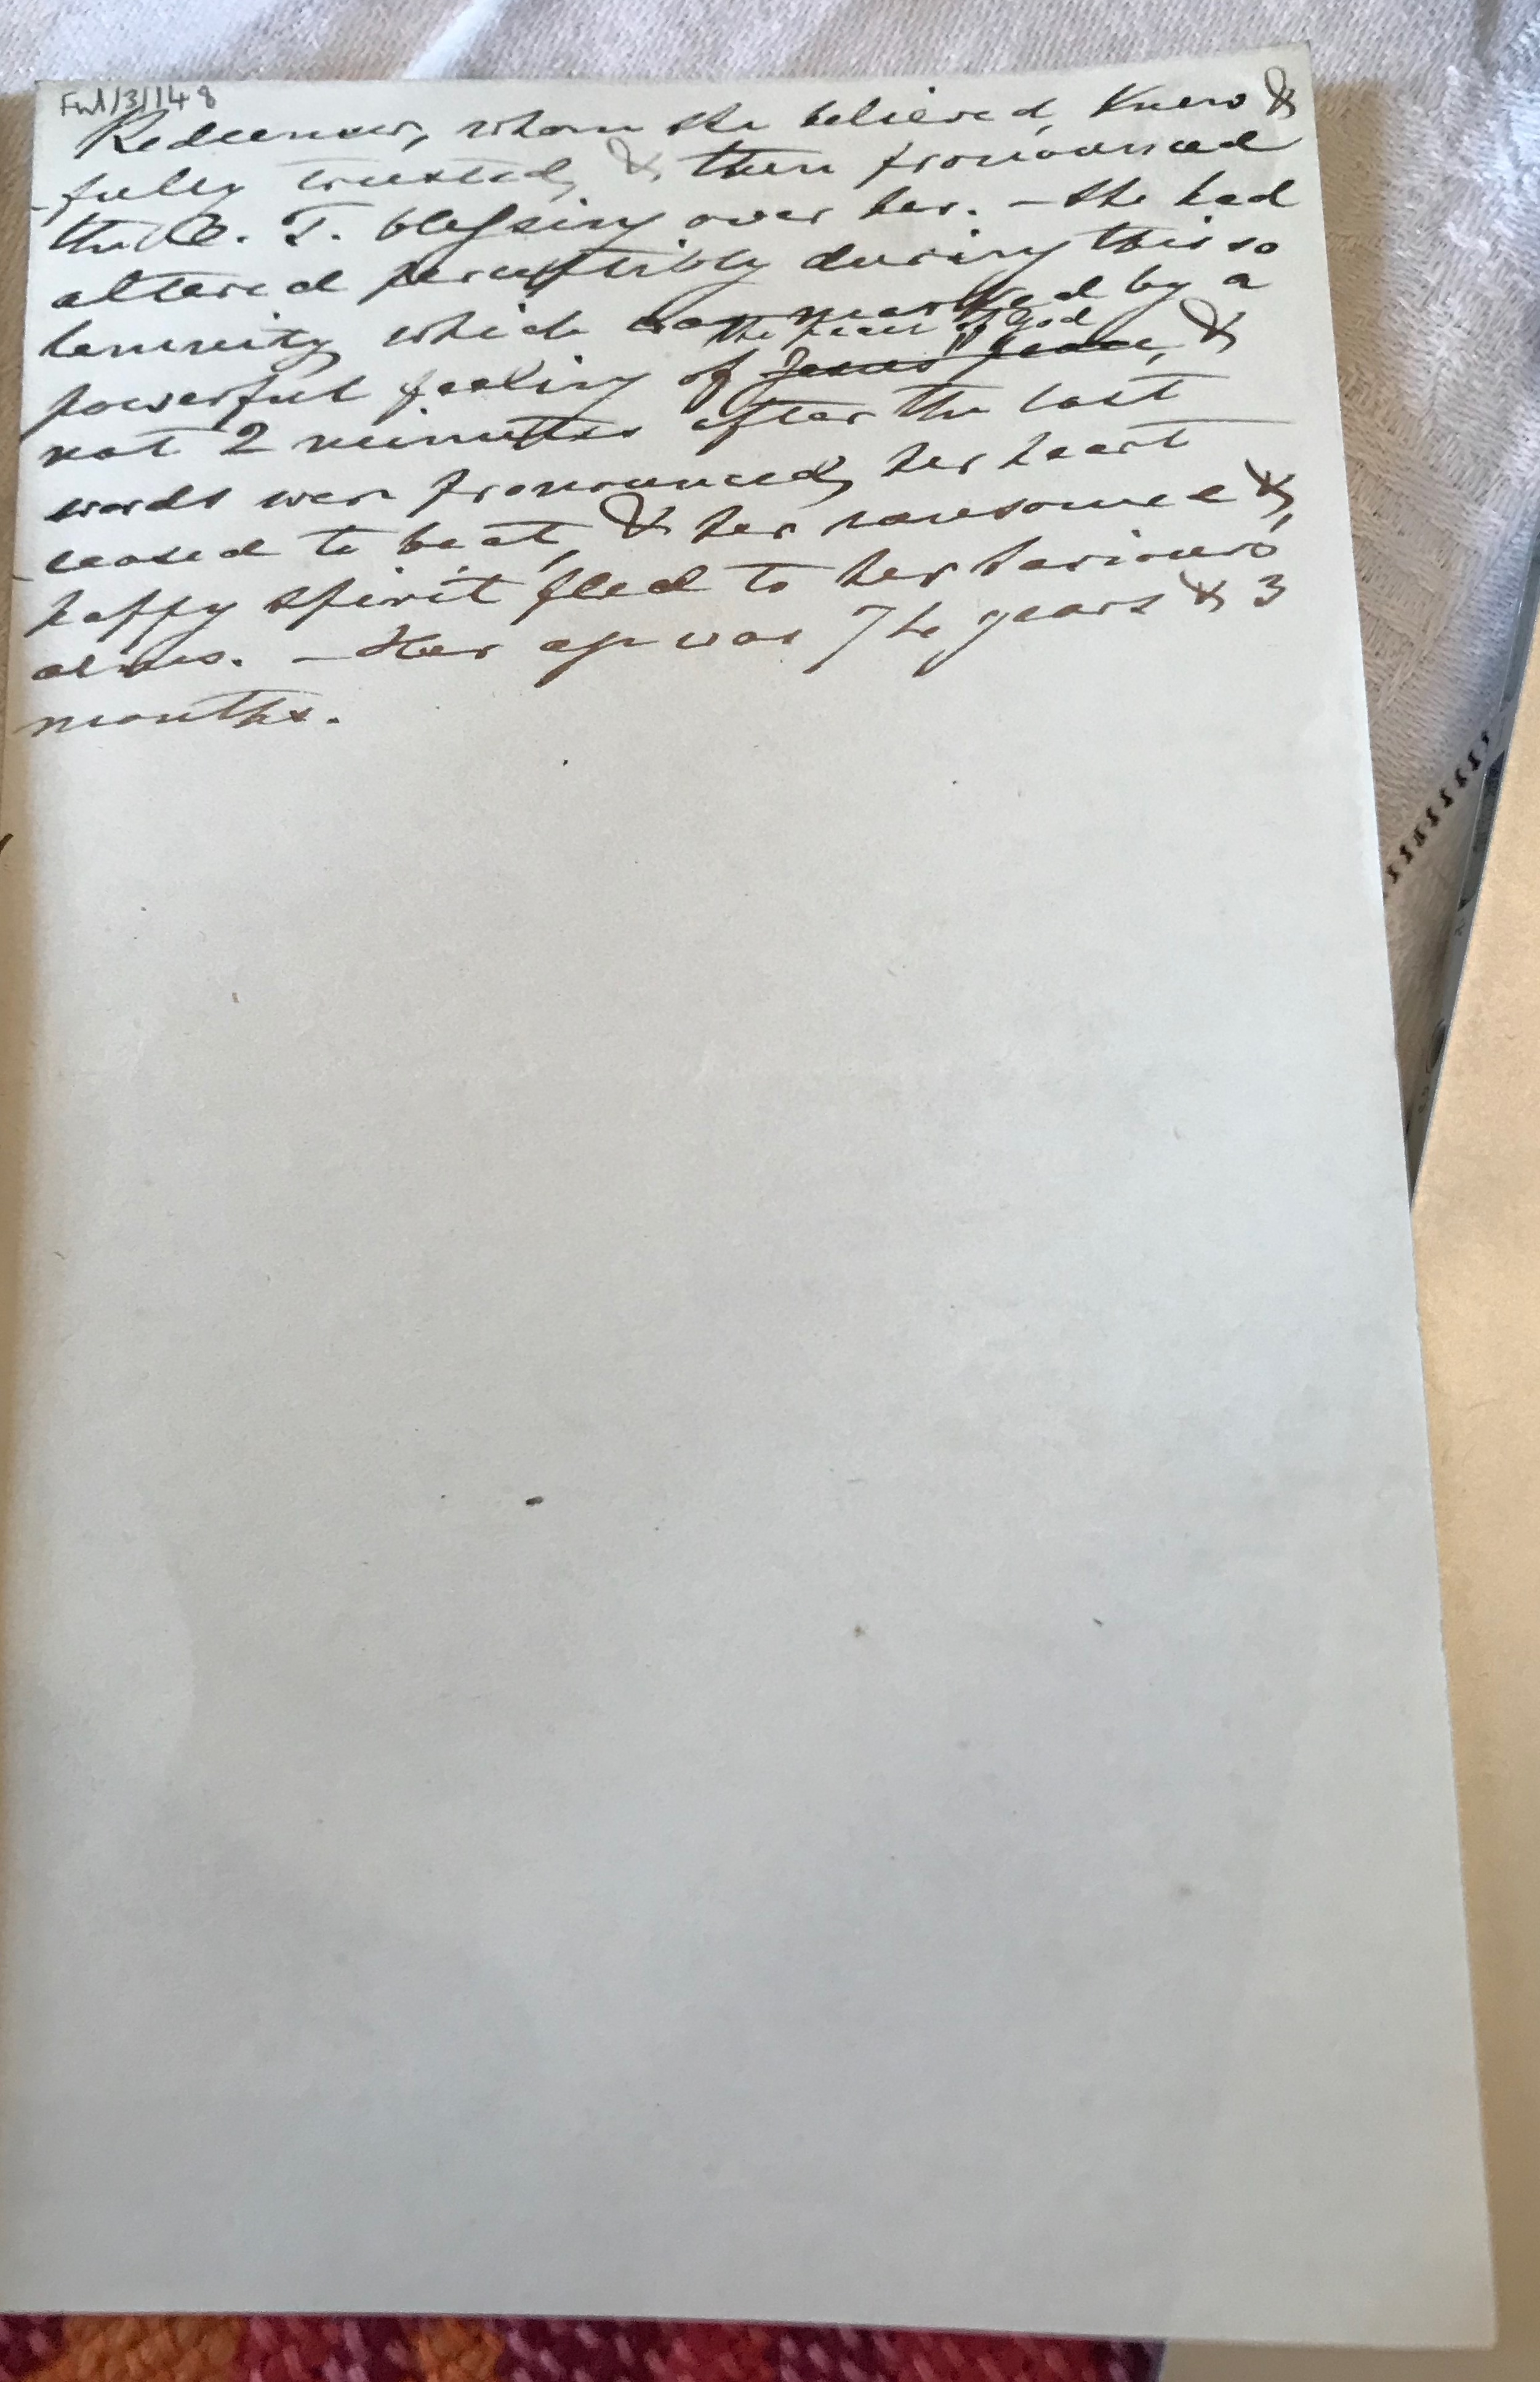 Ful/3/148
Redeemer, whom she believed, knew &
fully trusted, & then pronounced
the O. T. blessing over her. – She had
altered perceptibly during this so
lemnity, which was marked by a
the peace of God
powerful feeling of Jesus' peace, &
not 2 minutes after the last
words were pronounced, her heart
ceased to beat, & her ransomed &
happy spirit fled to her Saviours
arms. – Her age was 74 years & 3
months.